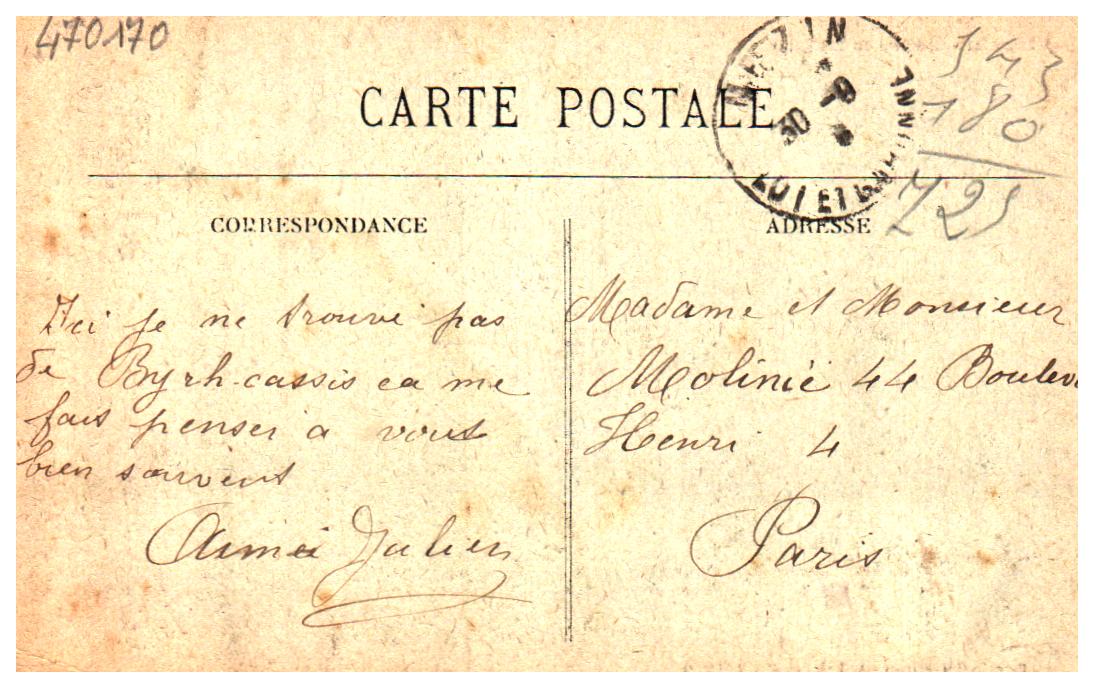 470170
CARTE POSTALE
MEZIN
30 - 9
LOT ET GARONNE
543
180
723
CORRESPONDANCE
ADRESSE
Ici je ne trouve pas
de Byrh-cassis ca me
fais penser a vous
bien souvent
Aimée Julien
Madame et Monsieur
Molinié 44 Boulev
Henri 4
Paris